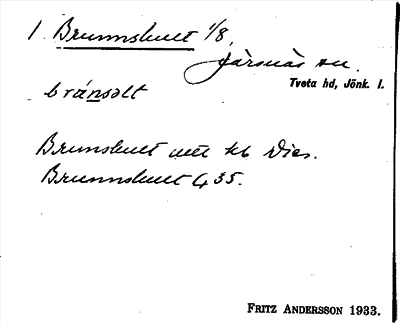 1. Brunnshult 1/8,
Järsnäs sn.
Tveta hd, Jönk. l.
bránsəlt
Brunshult utt kb Dies.
Brunnshult G 35.
FRITZ ANDERSSON 1933.